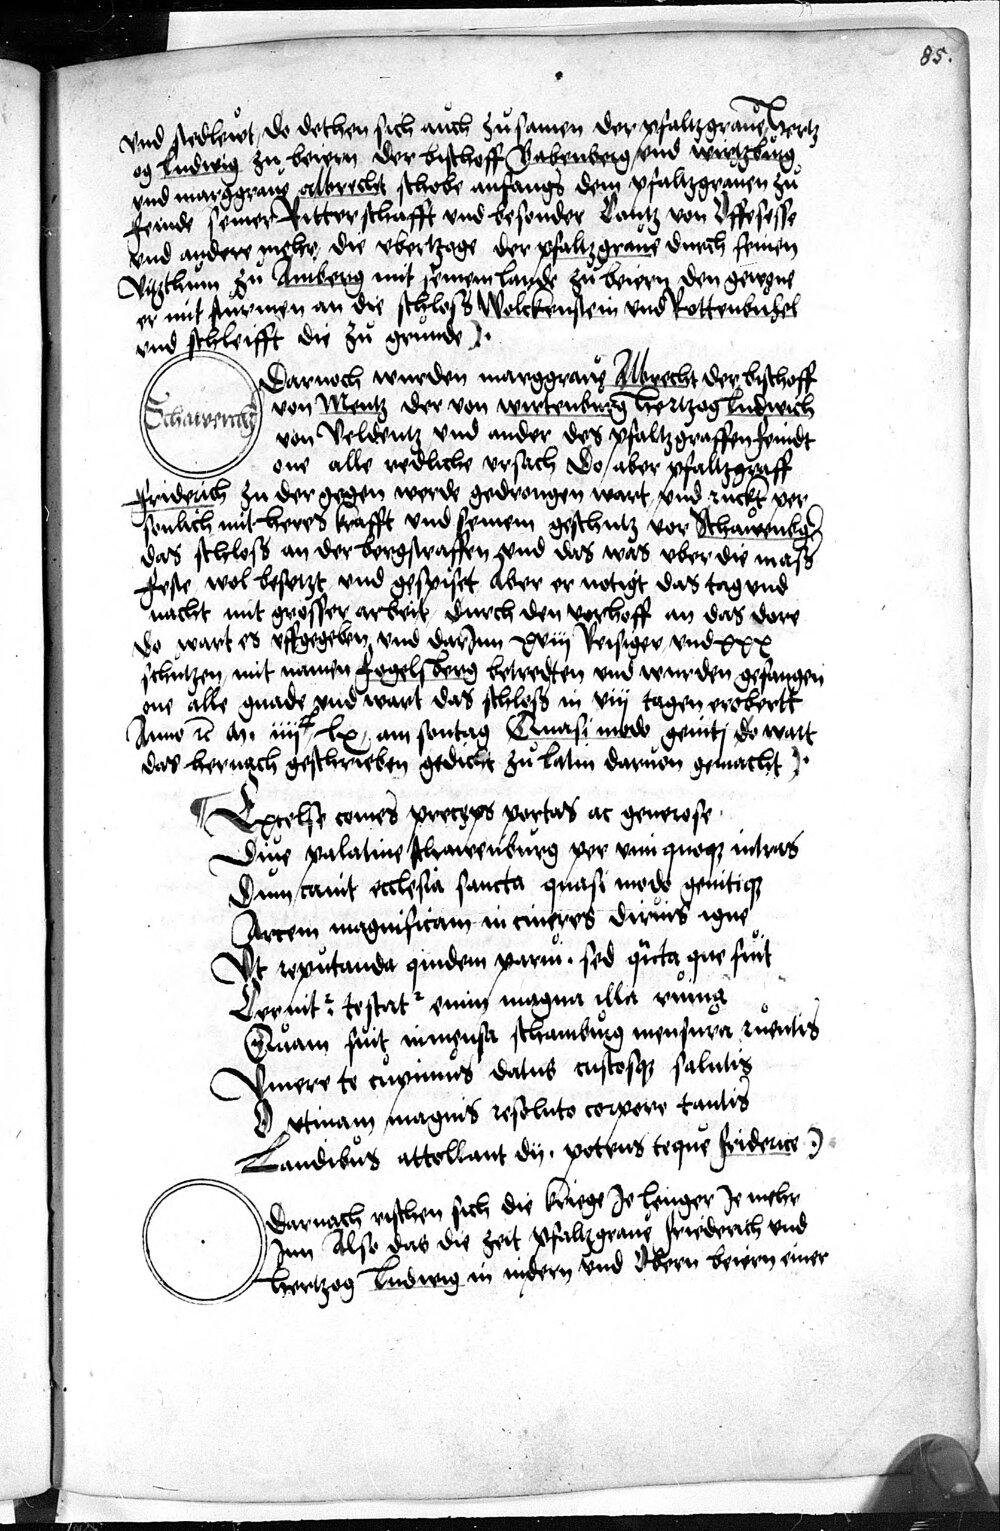 85.
vnd siedleut / do dethen sich auch zu samen der pfaltzgraue / hertz
og ludwig zu beiern der bischoff Babenberg / vnd wirtzburg
vnd marggraue albrecht schobe anfangs dem pfaltzgrauen zu
feinde seiner Ritterschafft vnd besonder Contz von Vffesesse
vnd andere mehr die vbertzoge der pfaltzgraue durch seinen
Vitzthum zu Amberg mit seinem lande zu beiern den gewyne
er mit sturmen an die schloss Wolckenstein vnd Rottenbuhel
vnd schleifft die zu grunde
Darnoch wurden marggraue Albrecht der bischoff
Schawenburg
von Mentz der von wirtenburg hertzog ludwich
von Veldentz vnd ander des pfaltzgraffen feindt
one alle redliche vrsach Do / aber pfaltzgraff
friderich zu der gegen werde gedrongen wart / vnd ruckt per
sonlich mit heres krafft vnd seinem geschutz vor Schawenbg
das schloss an der bergstrassen vnd das was vber die mass
feste wol besetzt vnd gespiset Aber er notigt das tag vnd
nacht mit grosser arbeit / durch den vorhoff an das dore
do wart es vffgegeben vnd darInn xviij Reisiger / vnd xxx
schutzen mit namen fogelsberg betredten vnd wurden gefangen
one alle gnade vnd wart das schloss in viij tagen erobertt
Anno &c m. iiijc lx / am sontag Quasi modo geniti do wart
das hernach geschrieben gedicht zu latin daruon gemacht
Excelse comes preceps portas ac generose
Diue palatine schawenburg per vim quoque intras
Dum canit ecclesia sancta quasi modo genitique
Arcem magnificam in cineres diruis igne
Vt reputanda quidem parui . sed quanta que fuit
Cernitur testatur enim magna illa ruina
Quam fuit inmensa schamburg mensura ruentis
Viuere te cupimus datus custosque salutis
O vtinam magnis resoluto corpore tantis
Laudibus attollant dij . potens teque friderice
Darnach rischen sich die kriege Je lenger Je mehr
Inn Also das die zeit pfaltzgraue friederich vnd
hertzog ludwig in nidern vnd Obern beiern einer